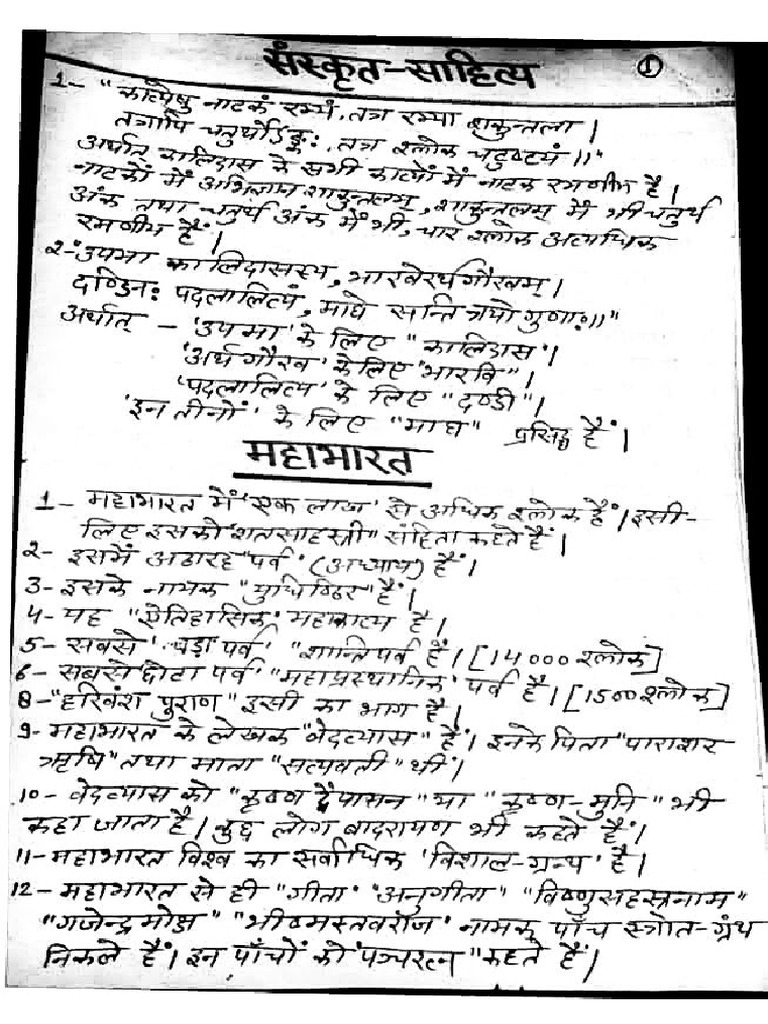 संस्कृत-साहित्य ①
1- "काव्येषु नाटकं रम्यं, तत्र रम्या शकुन्तला।
तत्रापि चतुर्थोऽङ्कः, तत्र श्लोक चतुष्टयं॥"
अर्थात् कालिदास के सभी काव्यों में नाटक रमणीय है।
नाटकों में अभिज्ञान शाकुन्तलम्, शाकुन्तलम् में भी चतुर्थ
अंक तथा चतुर्थ अंक में भी, चार श्लोक अत्यधिक
रमणीय हैं।
2-"उपमा कालिदासस्य, भारवेरर्थगौरवम्।
दण्डिनः पदलालित्यं, माघे सन्ति त्रयो गुणाः॥"
अर्थात् - 'उपमा' के लिए "कालिदास"।
'अर्थ गौरव' के लिए "भारवि"।
'पदलालित्य' के लिए "दण्डी"।
'इन तीनों' के लिए "माघ" प्रसिद्ध हैं।
महाभारत
1- महाभारत में 'एक लाख' से अधिक श्लोक हैं। इसी-
लिए इसको "शतसाहस्त्री" संहिता कहते हैं।
2- इसमें अठारह "पर्व" (अध्याय) हैं।
3- इसके नायक "युधिष्ठिर" हैं।
4- यह "ऐतिहासिक" महाकाव्य है।
5- सबसे 'बड़ा पर्व' "शान्तिपर्व हैं। [14000 श्लोक]
6- सबसे छोटा पर्व' "महाप्रस्थानिक" पर्व है। [1500 श्लोक]
8-"हरिवंश पुराण" इसी का भाग है।
9- महाभारत के लेखक "वेदव्यास" हैं। इनके पिता "पाराशर
ऋषि" तथा माता "सत्यवती" थीं।
10- वेदव्यास को "कृष्ण द्वैपायन" या "कृष्ण-मुनि" भी
कहा जाता है। कुछ लोग बादरायण भी कहते हैं।
11- महाभारत विश्व का सर्वाधिक 'विशाल-ग्रन्थ' है।
12- महाभारत से ही "गीता" "अनुगीता" "विष्णुसहस्त्रनाम"
"गजेन्द्रमोक्ष" "भीष्मस्तवराज' नामक पाँच स्त्रोत-ग्रंथ
निकले हैं। इन पाँचों को "पञ्चरत्न" कहते हैं।